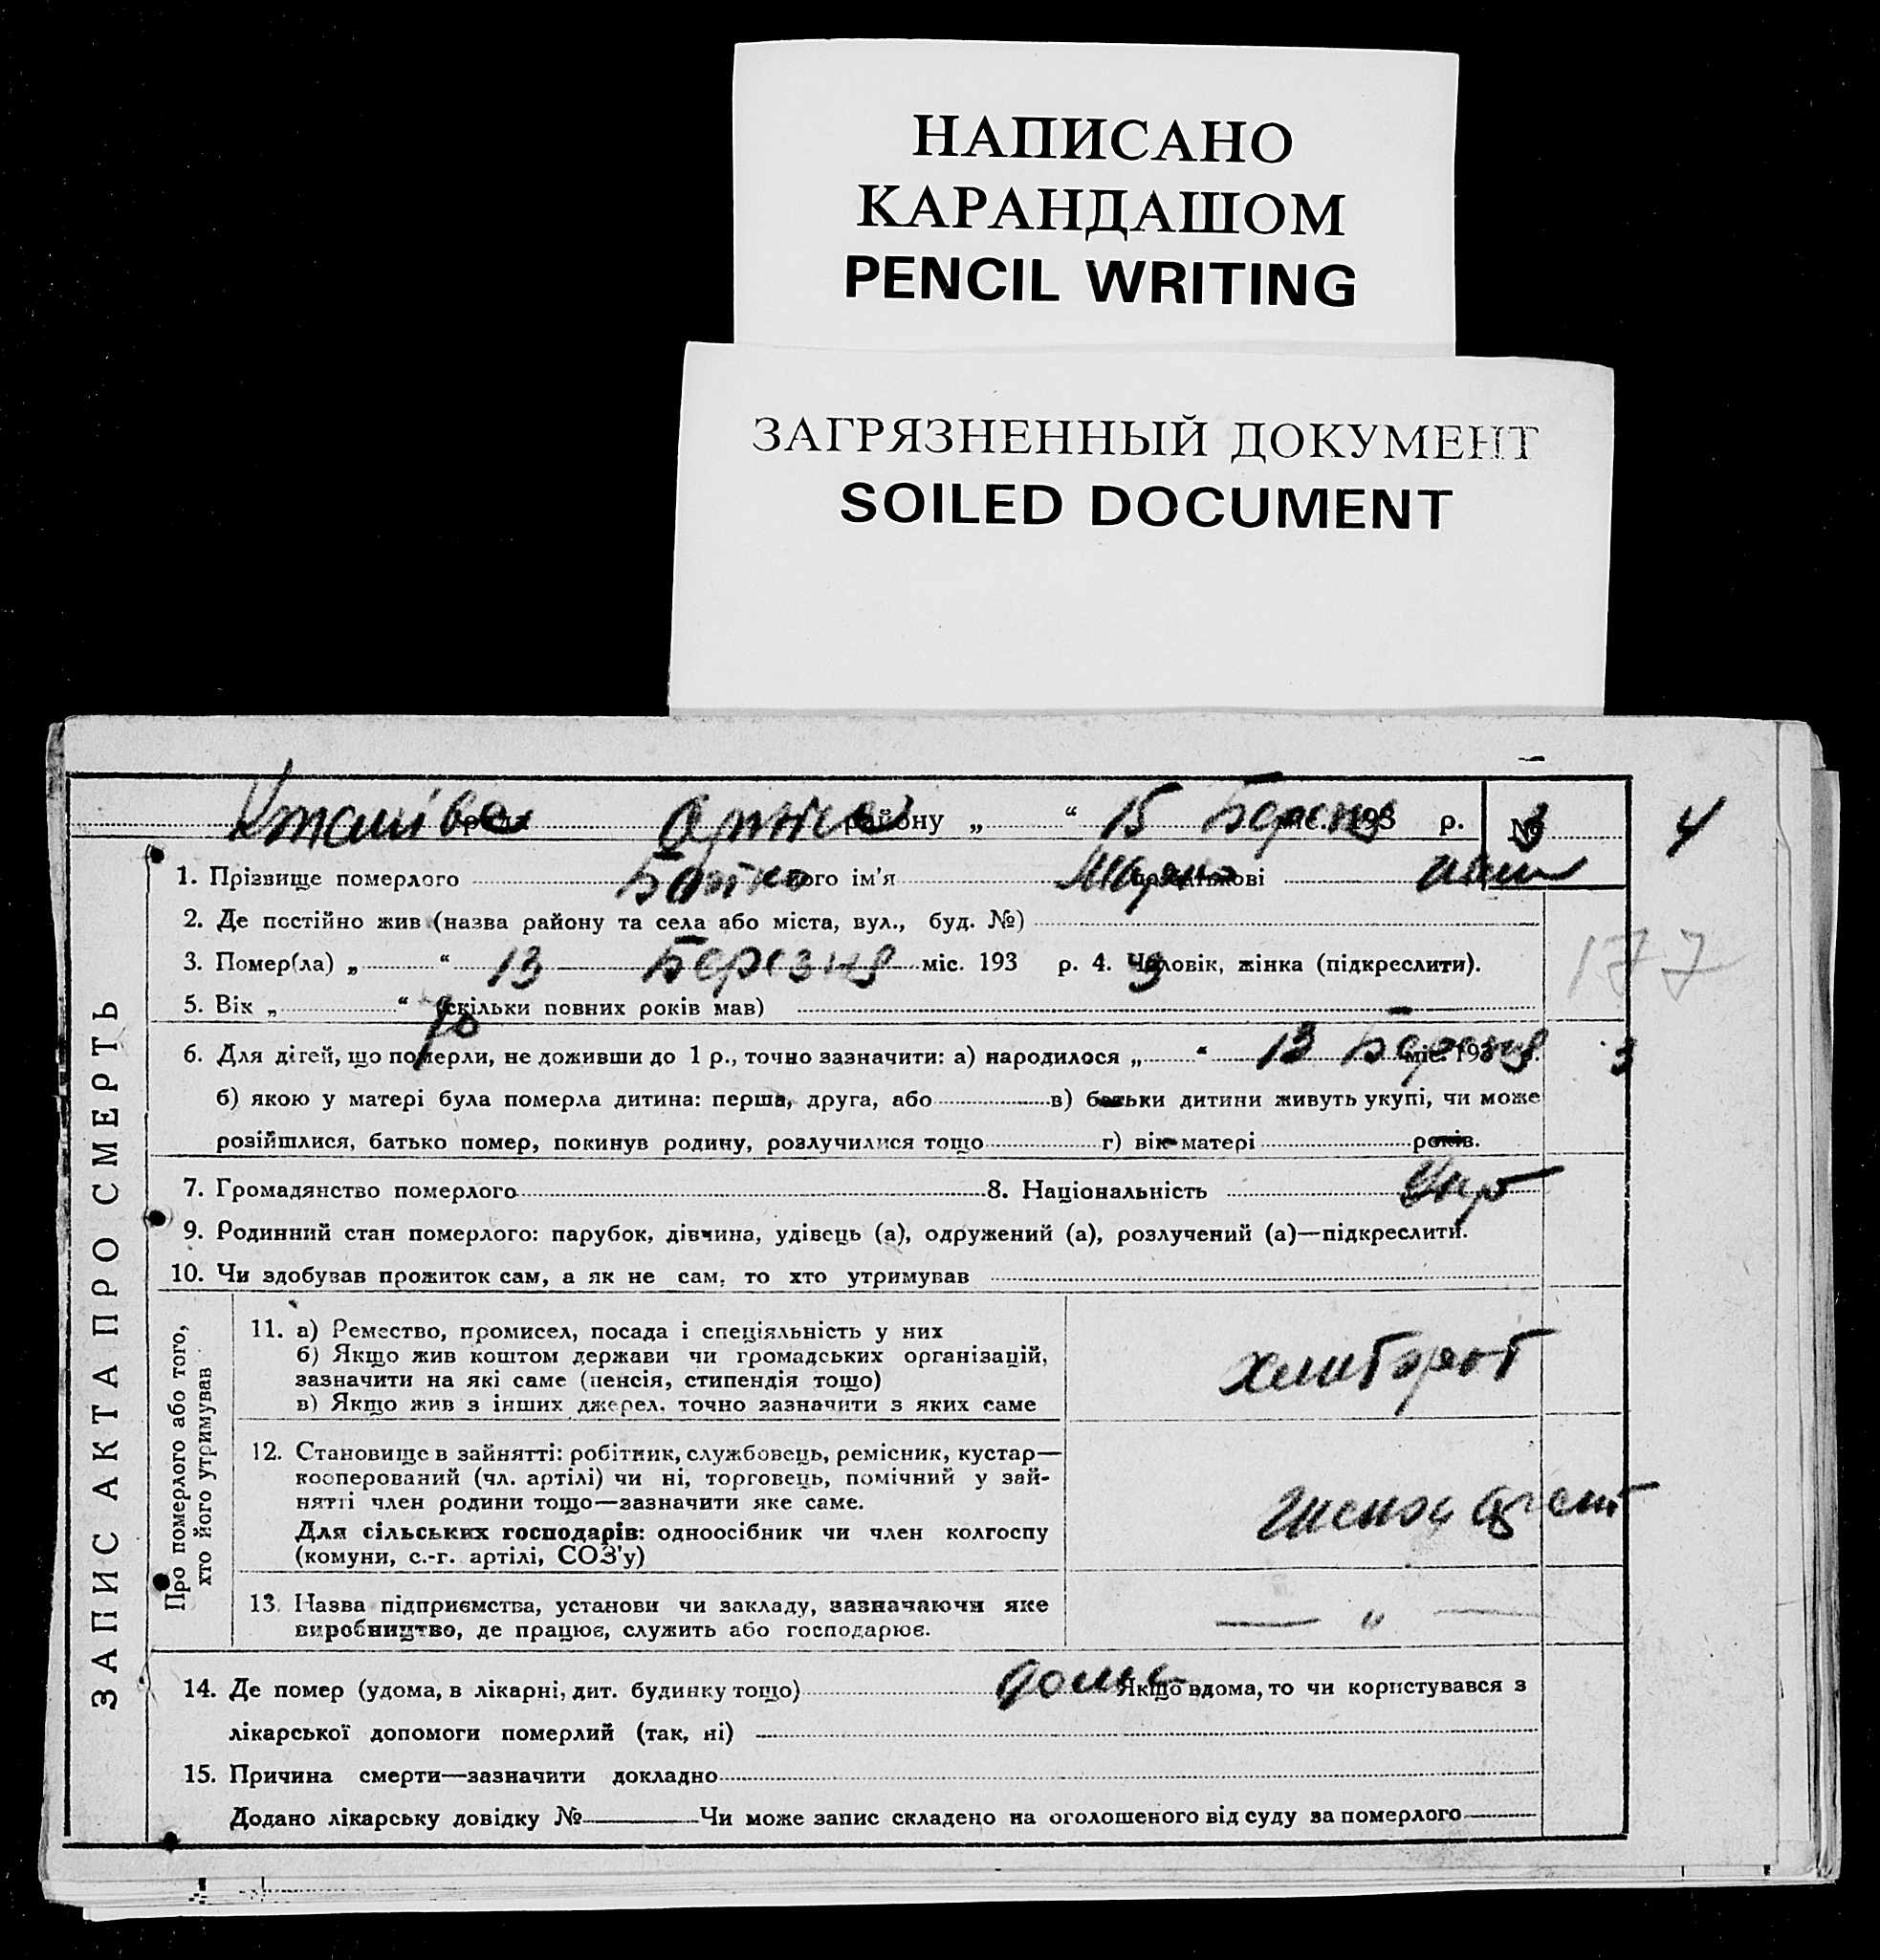 НАПИСАНО
КАРАНДАШОМ
PENCIL WRITING
ЗАГРЯЗНЕННЫЙ ДОКУМЕНТ
SOILED DOCUMENT
району „ “ 15 Березня міс. 193 р. № 3
4
1. Прізвище померлого Бойко його ім’я по батькові
2. Де постійно жив (назва району та села або міста, вул., буд. №)
3. Помер(ла) „ “ 13 Березня міс. 193 3 р. 4. Чоловік, жінка (підкреслити).
177
5. Вік „ “ 70 (скільки повних років мав)
6. Для дітей, що померли, не доживши до 1 р., точно зазначити: а) народилося „ “ 13 Березня міс. 193 3
б) якою у матері була померла дитина: перша, друга, або в) батьки дитини живуть укупі, чи може
розійшлися, батько помер, покинув родину, розлучилися тощо г) вік матері років.
7. Громадянство померлого 8. Національність Укр
9. Родинний стан померлого: парубок, дівчина, удівець (а), одружений (а), розлучений (а)—підкреслити.
10. Чи здобував прожиток сам, а як не сам, то хто утримував
ЗАПИС АКТА ПРО СМЕРТЬ
Про померлого або того,
хто його утримував
11. а) Ремество, промисел, посада і спеціяльність у них
б) Якщо жив коштом держави чи громадських організацій,
зазначити на які саме (пенсія, стипендія тощо)
в) Якщо жив з інших джерел, точно зазначити з яких саме
хлибороб
12. Становище в зайнятті: робітник, службовець, ремісник, кустар—
кооперований (чл. артілі) чи ні, торговець, помічний у зай-
нятті член родини тощо—зазначити яке саме.
Для сільських господарів: одноосібник чи член колгоспу
(комуни, с.-г. артілі, СОЗ’у)
13. Назва підприємства, установи чи закладу, зазначаючи яке
виробництво, де працює, служить або господарює.
— „ —
14. Де помер (удома, в лікарні, дит. будинку тощо) дома Якщо вдома, то чи користувався з
лікарської допомоги померлий (так, ні)
15. Причина смерти—зазначити докладно
Додано лікарську довідку № Чи може запис складено на оголошеного від суду за померлого